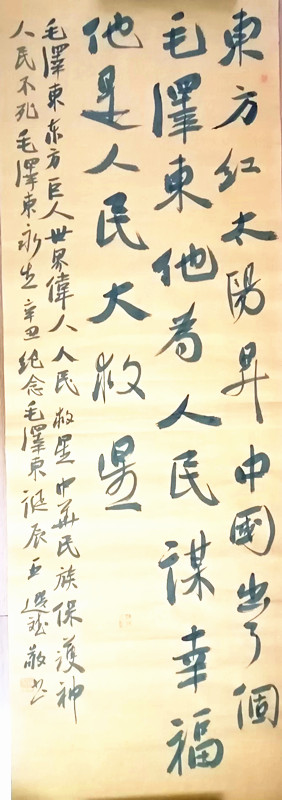 東方红太陽昇中國出了個
毛澤東他為人民謀幸福
他是人民大救星
毛澤東东方巨人世界偉人人民救星中華民族保護神
人民不死毛澤東永生辛丑纪念毛澤東诞辰王選敬书